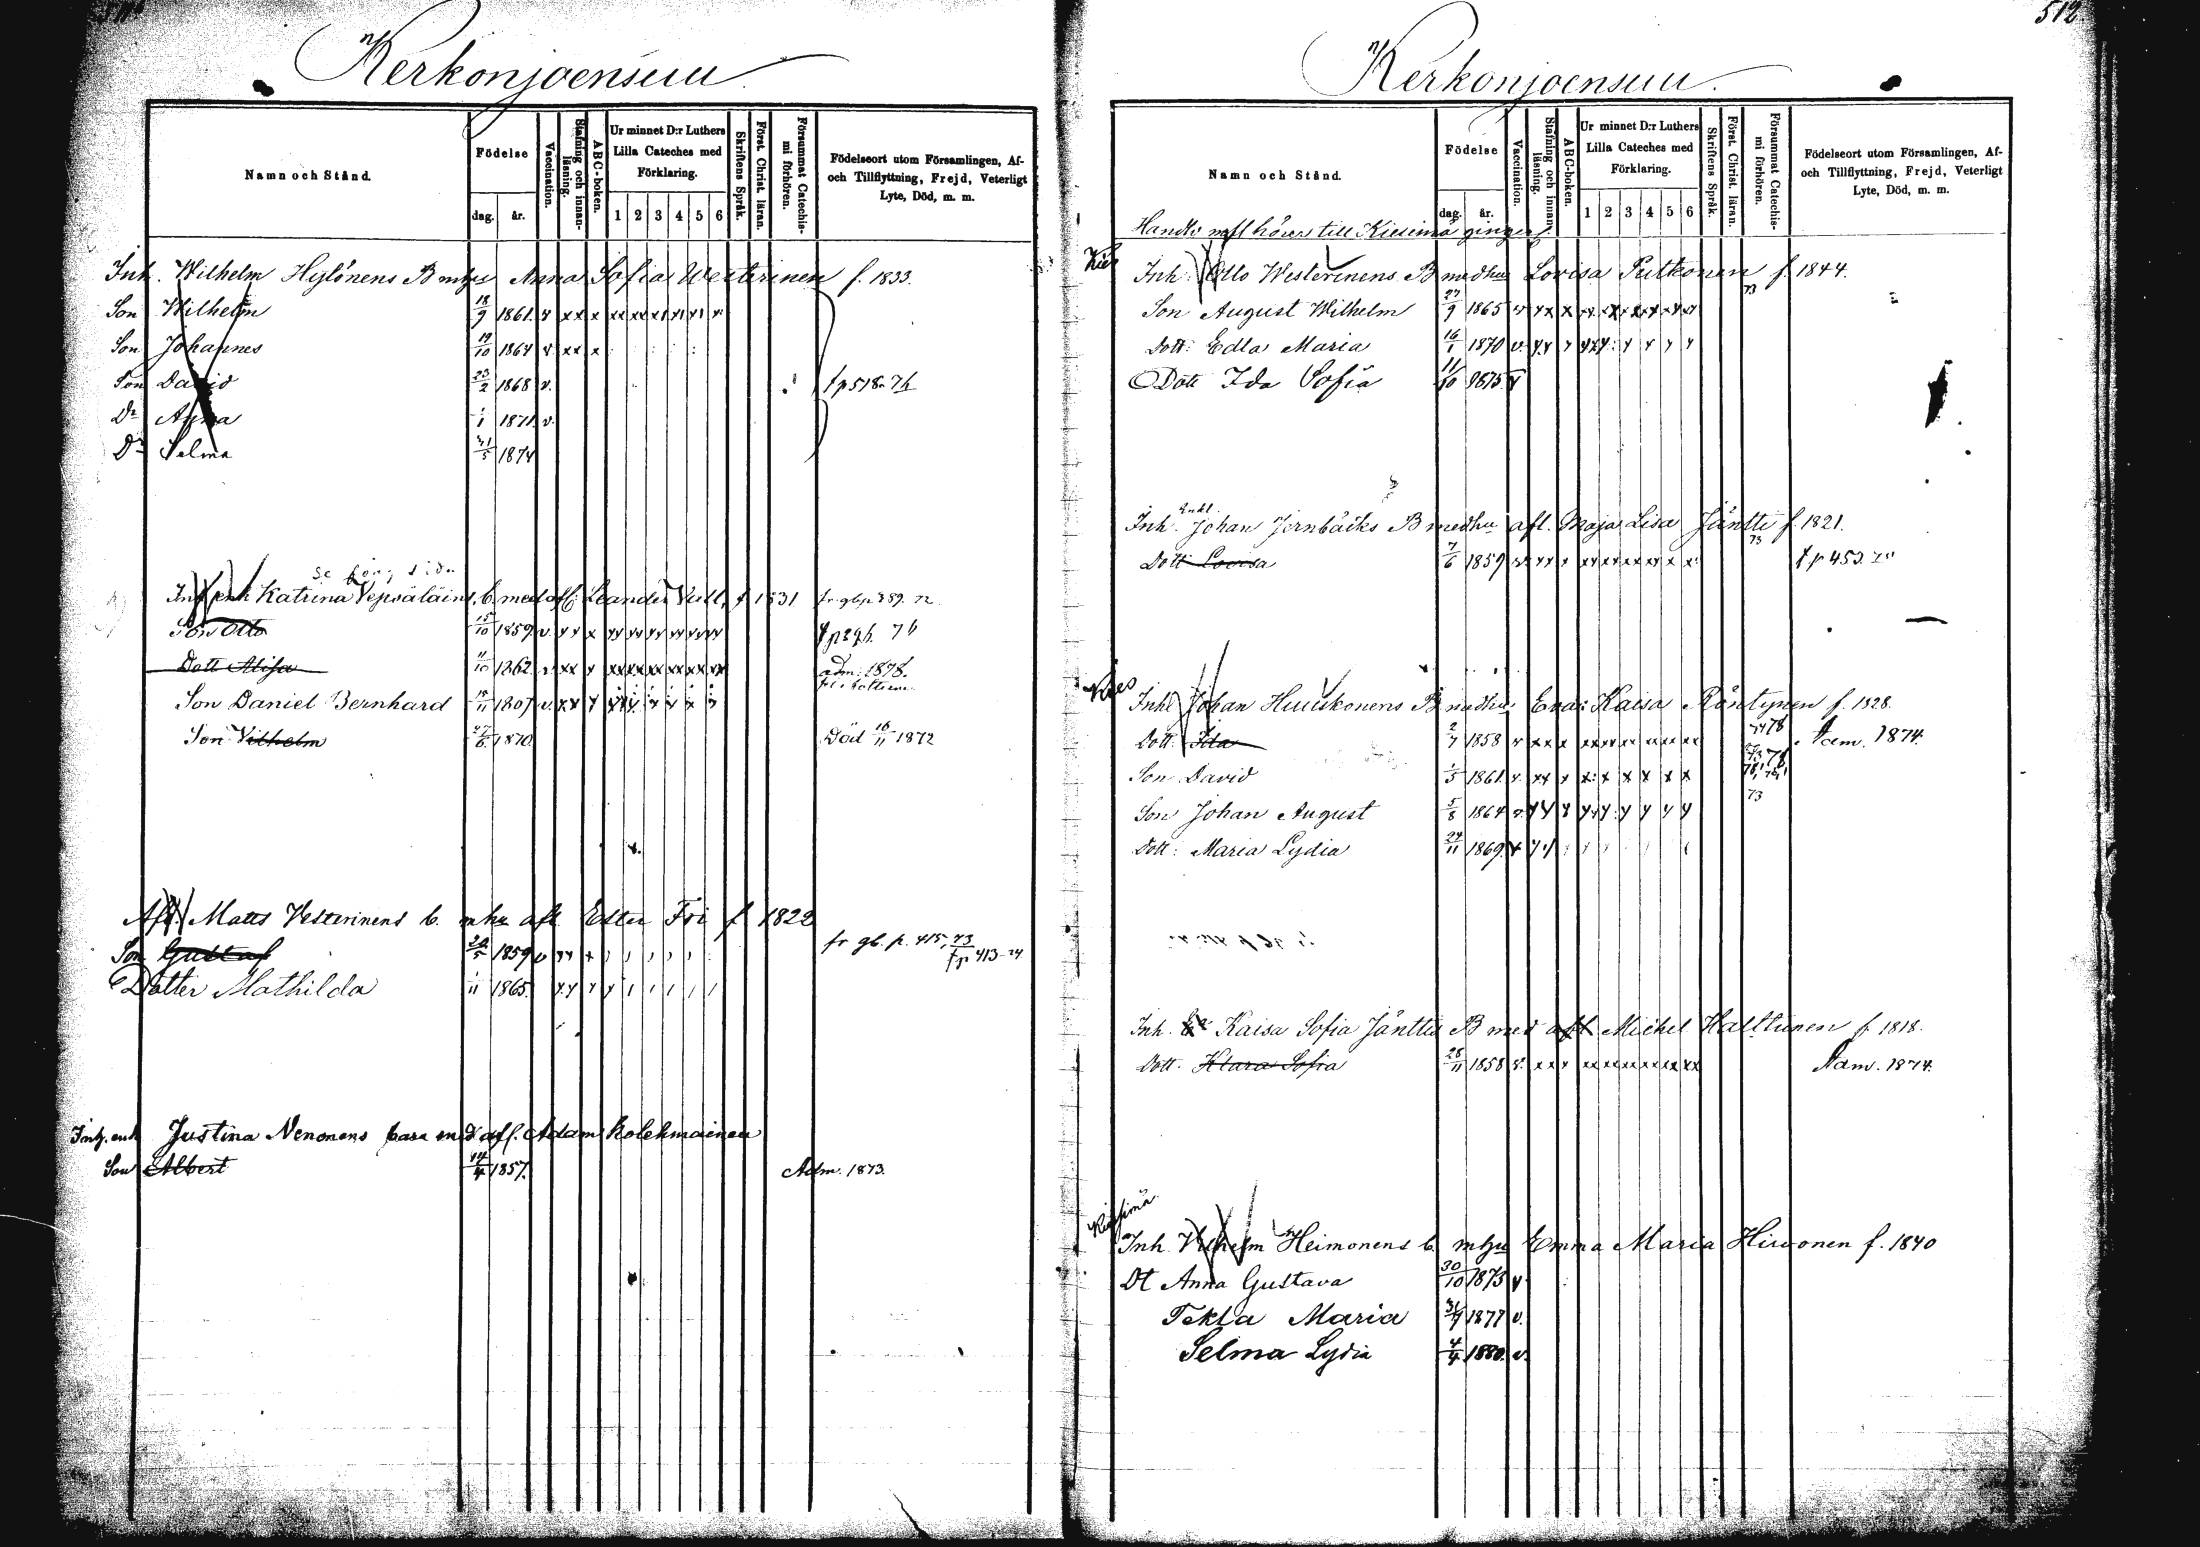 Kerkonjoensuu
Namn och Stånd.
Födelse
dag. år.
Vaccination.
Stafning och innanläsning.
ABC-boken.
Ur minnet D:r Luthers Lilla Cateches med Förklaring.
1 2 3 4 5 6
Skriftens Språk.
Först. Christ. läran.
Försummat Catechismi förhören.
Födelseort utom Församlingen, Af- och Tillflyttning, Frejd, Veterligt Lyte, Död, m. m.
Inh. Wilhelm Hylönens B mhu Anna Sofia Westerinen f. 1833.
Son Wilhelm 18/9 1861. v xx x xx xx x1 x1 x1 x
Son Johannes 19/10 1864 v xx x
Son David 23/2 1868 v. fp 518 76
Dr Anna 1871. v.
Dr Selma 31/5 1874
se föry sida
Inh enk Katrina Vepsäläins b. med afl: Leander Vall, f 1831 fr. gb p 389. 72
Son Otto 15/10 1859 v. xx x xx xx xx xx xx xx 76
Dott Alisa 11/10 1862 v. xx x xx xx xx xx xx xx adm: 1878.
Son Daniel Bernhard v. xx x
Son Vilhelm 1870 Död 16/11 1872
Afl. Matts Vesterinens b. mhu afl Ester Fri f 1822
Son Gustaf 1859 v xx x fr gb. p. 415, 73
fp 413 - 74
Dotter Mathilda 1/11 1865. xx x
Inh. enk Justina Nenonens barn med afl. Adam Kolehmainen
Son Albert 14/4 1857. Adm. 1873.
512
Kerkonjoensuu.
Namn och Stånd.
Födelse
dag. år.
Vaccination.
Stafning och innanläsning.
ABC-boken.
Ur minnet D:r Luthers Lilla Cateches med Förklaring.
1 2 3 4 5 6
Skriftens Språk.
Först. Christ. läran.
Försummat Catechismi förhören.
Födelseort utom Församlingen, Af- och Tillflyttning, Frejd, Veterligt Lyte, Död, m. m.
till Kiesimä
Kies
Inh. Otto Westerinens B medhu Lovisa Putkonen f. 1844.
73
Son August Wilhelm 27/9 1865 v xx x
Dott: Edla Maria 16/1 1870 v. xx x
Dott Ida Sofia 11/10 1875 v
Inh. Johan Jernbäcks B medhu afl. Maja Lisa Jäntti f. 1821.
73
Dott Lovisa 7/6 1859 v. xx x xx xx xx xx x x fp 453
Kies
Inh Johan Huuskonens B medhu Eva Kaisa Räntynen f. 1828.
Dott. Ida 2/7 1858 v xx x xx xx xx xx xx xx Adm. 1874.
Son David 1/5 1861. v. xx x x x x x x x
73
Son Johan August 5/8 1864 v. xx x
Dott: Maria Lydia 24/11 1869. v
Inh. Kaisa Sofia Jänttis B med afl Michel Halttunen f. 1818.
Dott. Klara Sofia 28/11 1858 v. xx x xx xx xx xx xx xx Adm. 1874.
Kiesimä
Inh. Vilhelm Heimonens b. mhu Emma Maria Hirvonen f. 1840
Dt Anna Gustava 30/10 1873 v
Tekla Maria 1877 v.
Selma Lydia 4/4 1880. v.